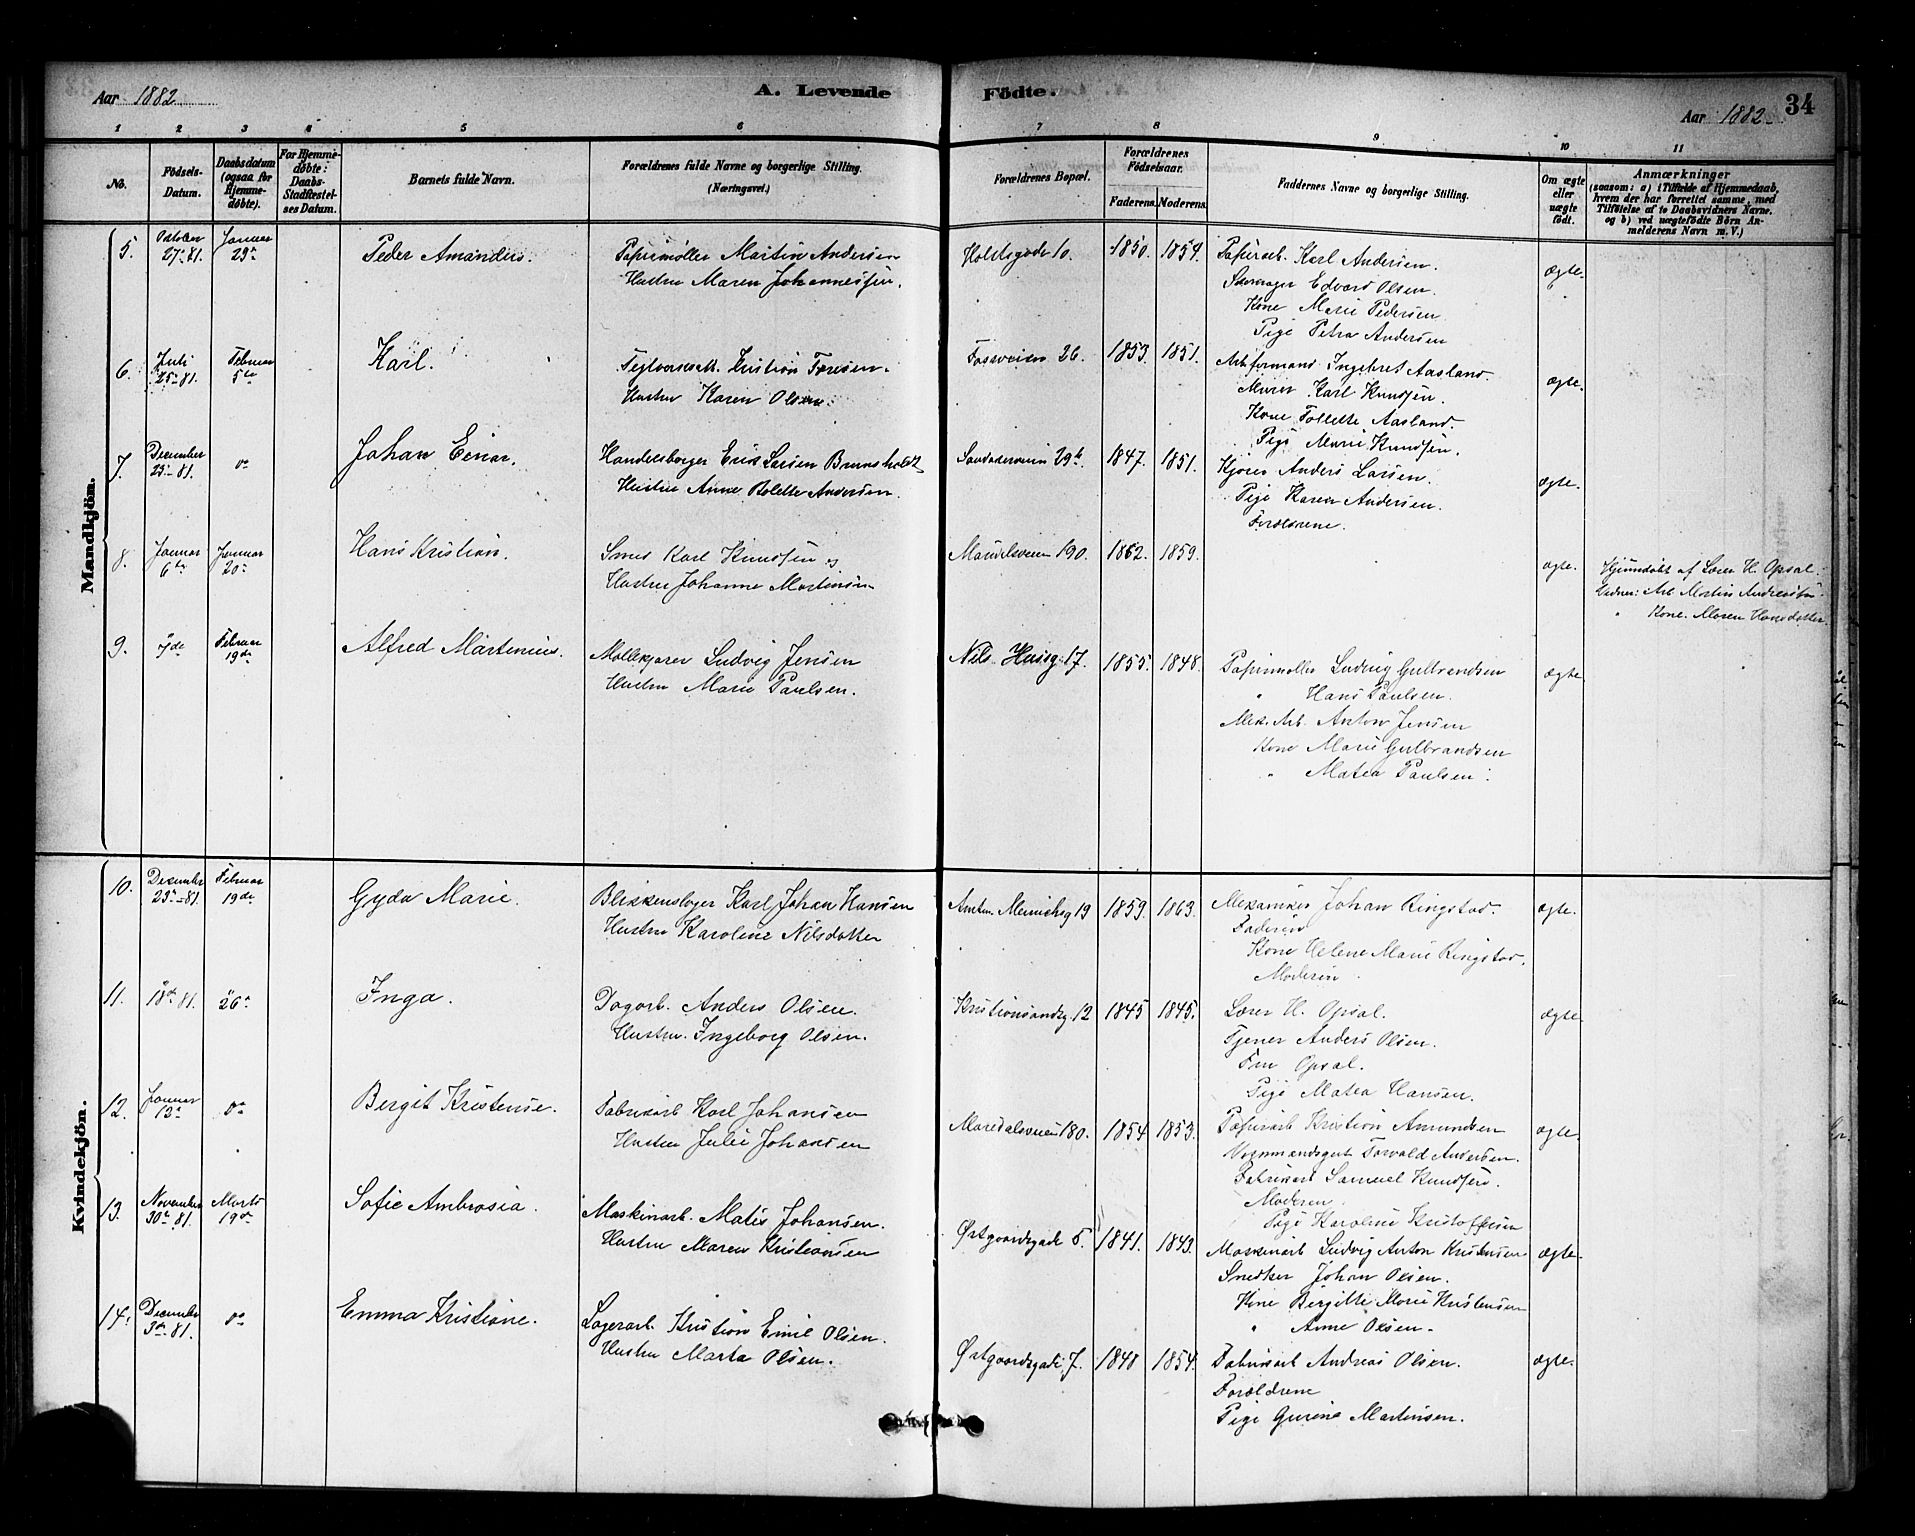 Aar 1882
A. Levende Födte.
Aar 1882
34
1 2 3 4 5 6 7 8 9 10 11
No.
Födsels-Datum.
Daabsdatum (ogsaa for Hjemmedöbte).
For Hjemmedöbte: Daabs-Stadfæstelses Datum.
Barnets fulde Navn.
Forældrenes fulde Navne og borgerlige Stilling. (Næringsvei.)
Forældrenes Bopæl.
Forældrenes Födselsaar.
Faderens. Moderens.
Faddernes Navne og borgerlige Stilling.
Om ægte eller uægte født.
Anmærkninger
(saasom: a) i Tilfælde af Hjemmedaab, hvem der har forrettet samme, med Tilføielse af to Daabsvidners Navne, og b) ved uægtefödte Börn Anmelderens Navn m. V.)
Mandkjön.
5. October 27de 81. Januar 29de Peder Amandus.
Martin Andersen
Hustru Maren Johannessen.
Holstsgade 10. 1850. 1854.
Papirarb. Karl Andersen.
Edvard Olsen.
Kone Marie Pedersen
Pige Petra Andersen
ægte.
6. Juli 25de 81. Februar 5te Karl.
Hustru Karen Olsen.
Fossveien 26. 1853. 1851.
Arb.formand Ingebret Aasland.
Murer Karl Knudsen.
Kone Tollette Aasland.
Pige Marie Knudsen.
ægte.
7. December 25de 81. do Johan Einar.
Handelsborger Eric Larsen
Hustru Anne Bolette Andersen.
29b. 1847. 1851.
Kjører Anders Larsen.
Pige Karen Andersen.
Forældrene.
ægte.
8. Januar 6te Januar 20de Hans Kristian.
Smed Karl Knudsen og
Hustru Johanne Martinsen
Maridalsveien 190. 1862. 1859.
ægte.
Hjemmedøbt af Lærer H. Opsal.
Vidner: Arb. Martin Andreassen
" Kone Maren Hansdatter.
9. " 7de Februar 19de Alfred Martenius.
Møllekjører Ludvig Jensen
Hustru Marie Paulsen.
Nils Husesg. 17. 1855. 1848.
Papirmøller Ludvig Gulbrandsen
" Hans Paulsen.
Mek. Arb. Anton Jensen
Kone Marie Gulbrandsen
" Matea Paulsen.
ægte
Kvindekjön.
10. December 25de 81. Februar 19de Gyda Marie.
Blikkenslager Karl Johan Hansen
Hustru Karoline Nilsdatter
Amtm. Meinichsg 19 1859. 1863.
Mekaniker Johan Ringstad.
Faderen
Kone Helene Marie Ringstad.
Moderen
ægte.
11. " 18de 81. " 26de Inga.
Dagarb. Anders Olsen.
Hustru Ingeborg Olsen.
Kristiansandsg. 12 1845 1845.
Lærer H. Opsal.
Tjener Anders Olsen.
Fru Opsal.
Pige Matea Hansen.
ægte
12. Januar 13de do Birgit Kristense.
Fabrikarb Karl Johansen
Hustru Julie Johansen
Maridalsveien 180. 1854 1853.
Papirarb Kristian Amundsen
Torvald Andersen.
Fabrikarb Samuel Knudsen.
Moderen
Pige Karoline Kristoffersen
ægte.
13. November 30te 81. Marts 19de Sofie Ambrosia.
Maskinarb. Matis Johansen.
Hustru Maren Kristiansen
Østgaardsgade 5. 1841. 1843.
Maskinarb Ludvig Anton Kristensen
Snedker Johan Olsen.
Kone Birgitte Marie Kristensen
" Anne Olsen.
ægte.
14. December 3de 81. do Emma Kristiane.
Lagerarb. Kristian Emil Olsen.
Hustru Marta Olsen.
Østgaardsgade 7. 1848 1854.
Fabrikarb Andreas Olsen.
Forældrene
Pige Gurine Martinsen.
ægte.